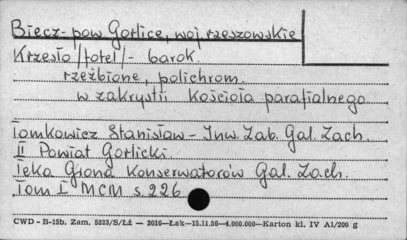 Biecz - pow Gorlice, woj rzeszowskie
Krzesło /fotel/ - barok.
rzeźbione, polichrom.
w zakrystii Kościoła parafialnego
Tomkowicz Stanisław - Inw. Zab. Gal. Zach.
II Powiat Gorlicki.
Teka Grona Konserwatorów Gal. Zach.
Tom I MCM s. 226
CWD - B-15b. Zam. 5823/S/Łż — 3016—Łak—15.11.56—4.000.000—Karton kl. IV A1/200 g